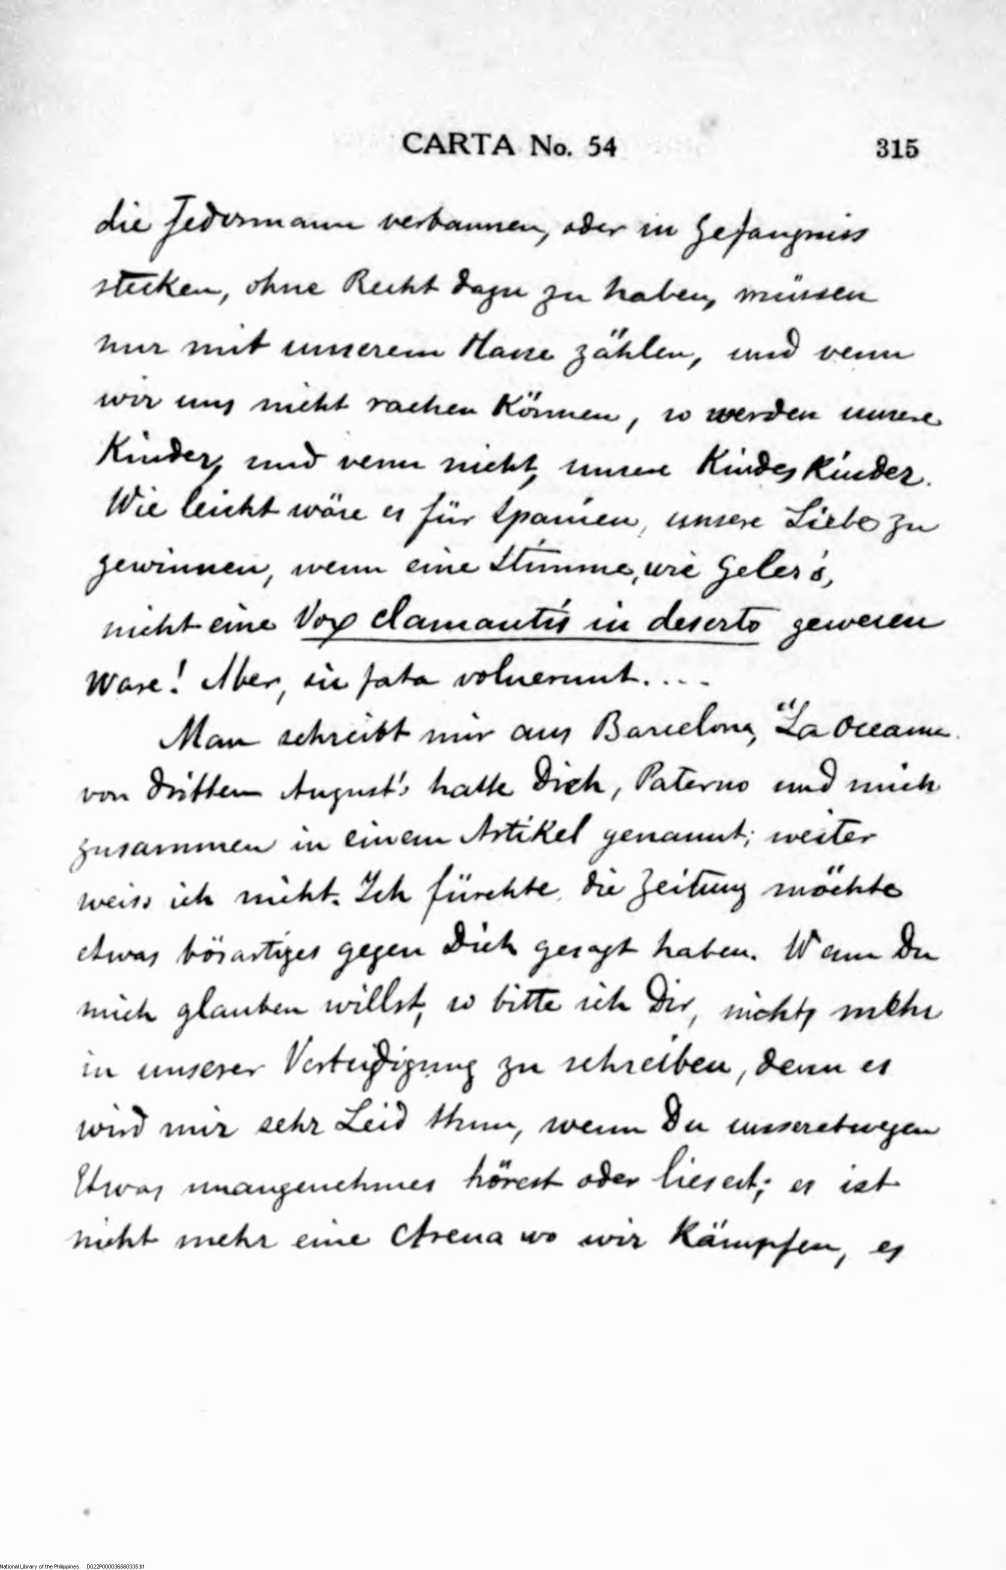 CARTA No. 54 315
die Jedermann verbannen, oder in Gefangniss
stecken, ohne Recht dazu zu haben, müssen
nur mit unserem Hasse zählen, und wenn
wir uns nicht rachen können, so werden unsere
Kinder, und wenn nicht, unsere KindesKinder.
Wie leicht wäre es für Spanien, unsere Liebe zu
gewinnen, wenn eine Stimme, wie Geler's,
nicht eine Vox clamantis in deserto gewesen
ware! Aber, sic fata voluerunt....
Man schreibt mir aus Barcelona, "La Oceania
von dritten August's hatte Dich, Paterno und mich
zusammen in einem Artikel genannt; weiter
weiss ich nicht. Ich fürchte die Zeitung möchte
etwas bösartiges gegen Dich gesagt haben. Wann Du
mich glauben willst, so bitte ich Dir, nichts mehr
in unserer Verteidigung zu schreiben, denn es
wird mir sehr Leid thun, wenn Du unseretwegen
Etwas unangenehmes hörest oder liesest; es ist
nicht mehr eine Arena wo wir Kämpfen, es
National Library of the Philippines